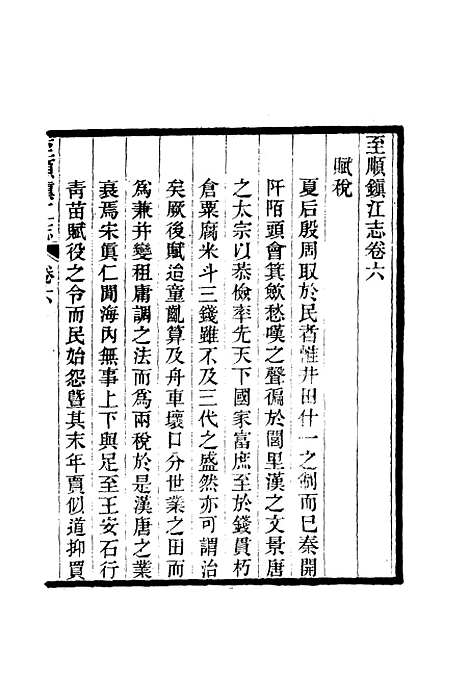 至順鎮江志卷六
賦稅
夏后殷周取於民者惟井田什一之制而已秦開
阡陌頭會箕歛愁嘆之聲徧於閭里漢之文景唐
之太宗以恭儉率先天下國家富庶至於錢貫朽
倉粟腐米斗三錢雖不及三代之盛然亦可謂治
矣厥後賦迨童齓算及舟車壞口分世業之田而
為兼并變租庸調之法而為兩稅於是漢唐之業
衰焉宋眞仁閒海內無事上下與足至王安石行
靑苗賦役之令而民始怨曁其末年賈似道抑買
至順鎮江志
卷六